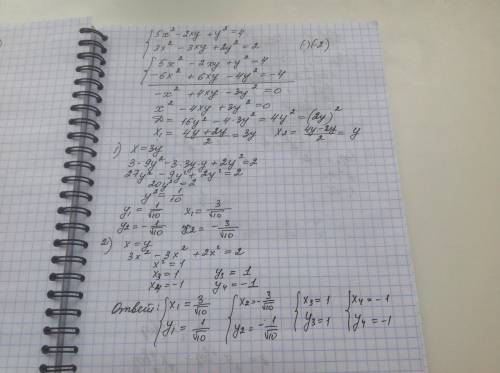 { 5x² - 2xy + y² = 4
{ 3x² - 3xy + 2y² = 2 | (·)(-2)
{ 5x² - 2xy + y² = 4
{ -6x² + 6xy - 4y² = -4
-x² + 4xy - 3y² = 0
x² - 4xy + 3y² = 0
D = 16y² - 4·3y² = 4y² = (2y)²
x₁ = (4y+2y)/2 = 3y x₂ = (4y-2y)/2 = y
1) x = 3y
3·9y² - 3·3y·y + 2y² = 2
27y² - 9y² + 2y² = 2
20y² = 2
y² = 1/10
y₁ = 1/√10 x₁ = 3/√10
y₂ = -1/√10 x₂ = -3/√10
2) x = y
3x² - 3x² + 2x² = 2
x² = 1
x₃ = 1 y₃ = 1
x₄ = -1 y₄ = -1
Ответ: { x₁ = 3/√10 { x₂ = -3/√10 { x₃ = 1 { x₄ = -1
{ y₁ = 1/√10 { y₂ = -1/√10 { y₃ = 1 { y₄ = -1